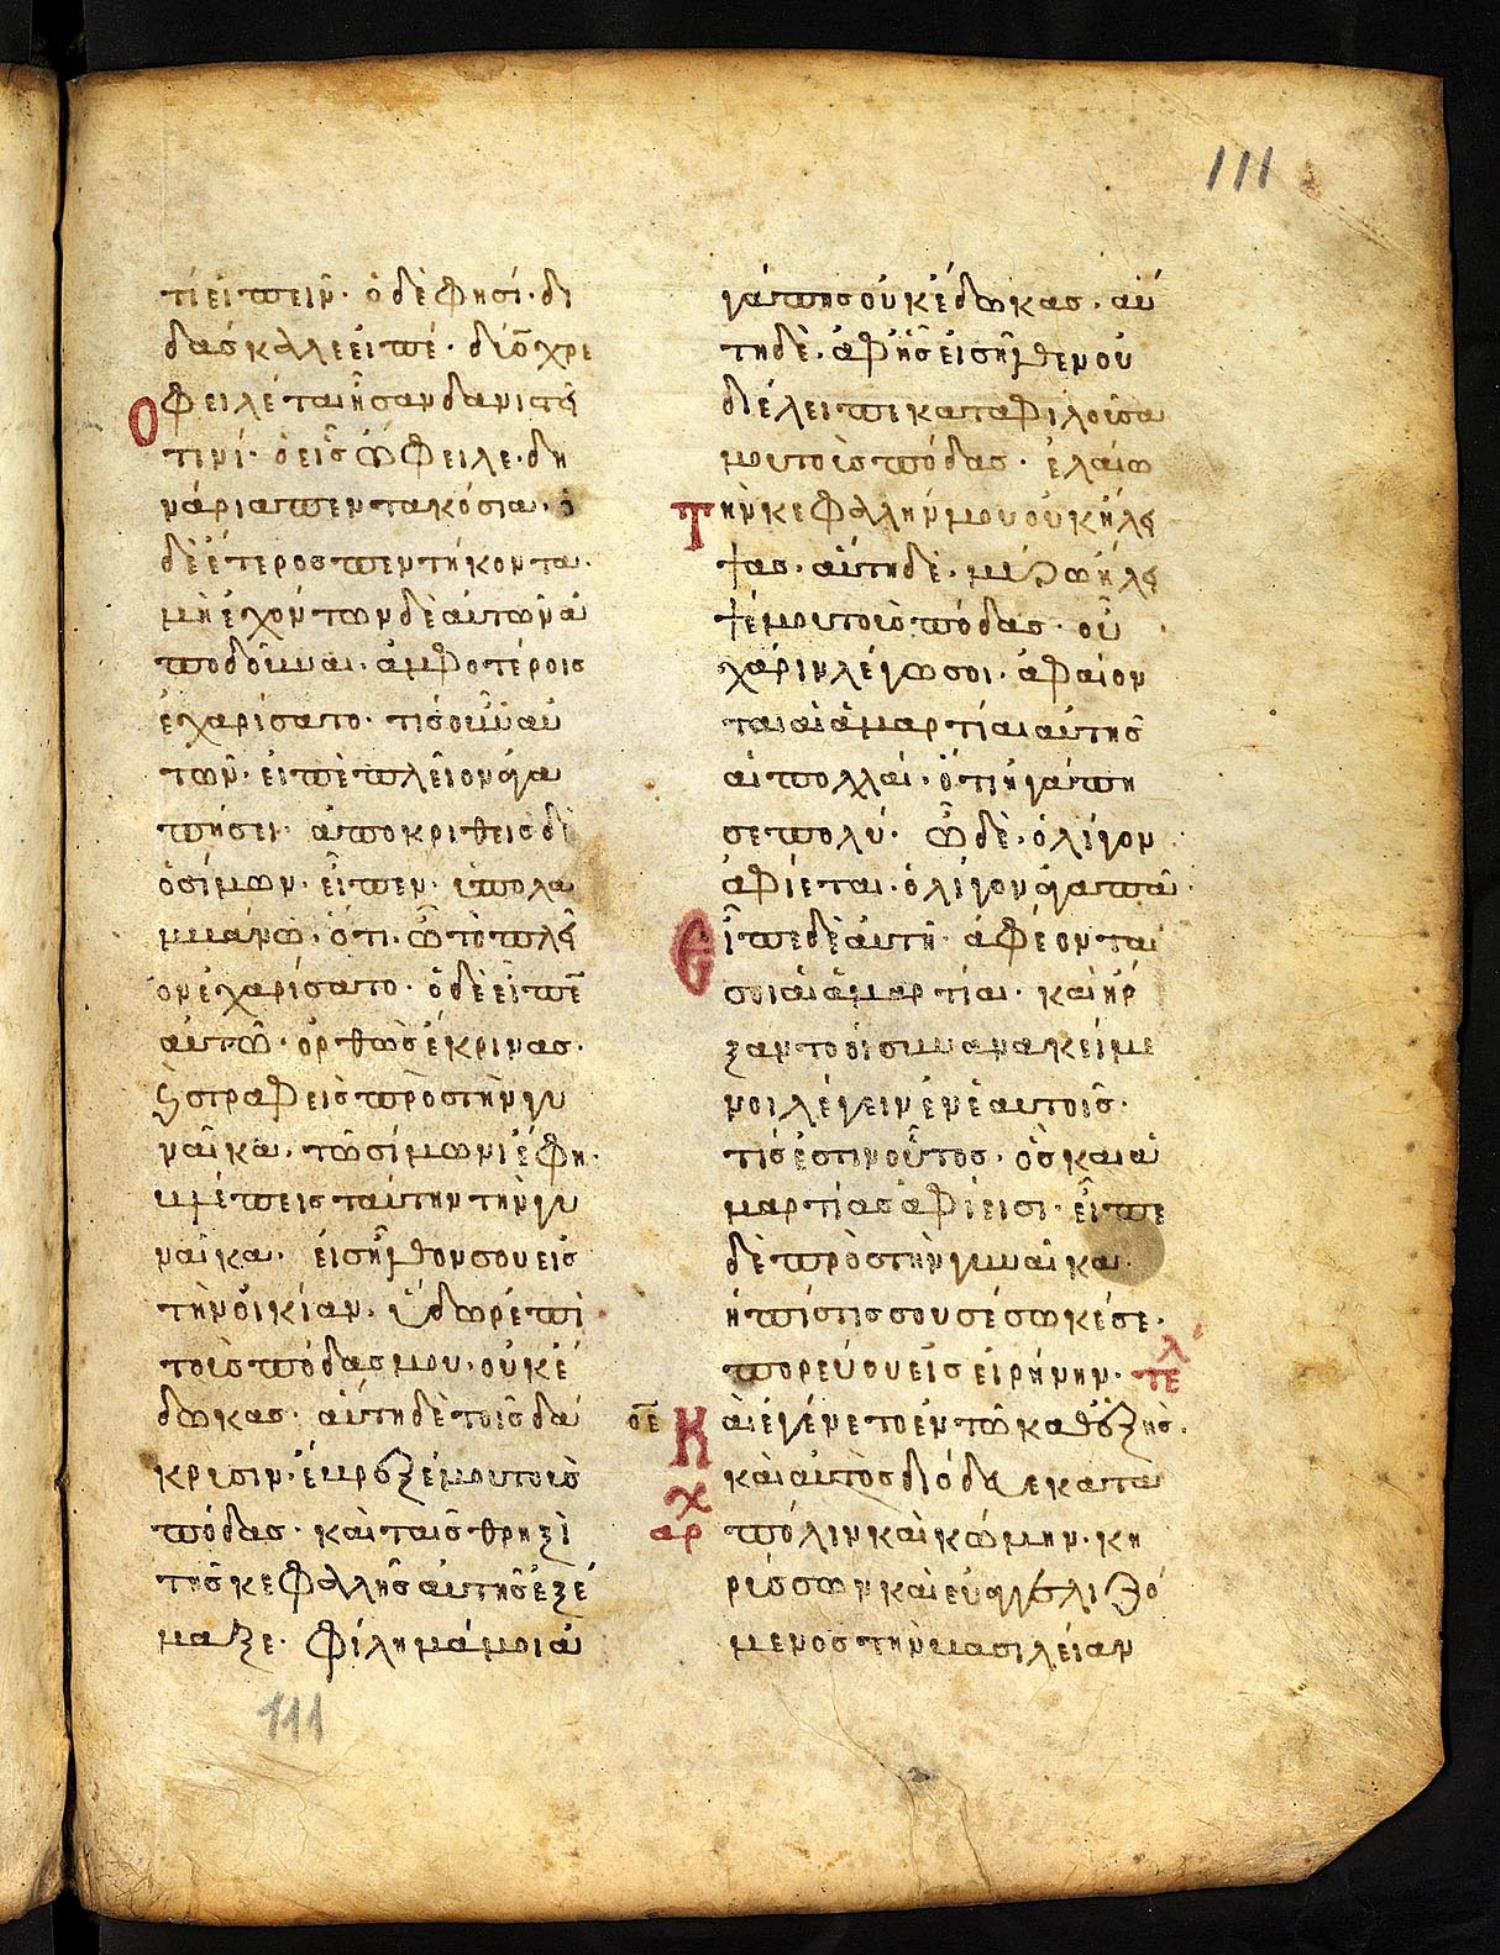 111
τί εἰπεῖν· ὁ δὲ φησί· δι
δάσκαλε εἰπέ· δύο χρε
οφειλέται ἦσαν δανιστῇ
τινί· ὁ εἷς ὤφειλε· δη
νάρια πεντακόσια· ὁ
δὲ ἕτερος πεντήκοντα·
μὴ ἐχόντων δὲ αὐτῶν ἀ
ποδοῦναι· ἀμφοτέροις
ἐχαρίσατο· τίς οὖν αὐ
τῶν· εἰπὲ πλεῖον ἀγα
πήσει· ἀποκριθεὶς δὲ
ὁ σίμων· εἶπεν· ὑπολα
μβάνω· ὅτι· ὧ τὸ πλεῖ
ον ἐχαρίσατο· ὁ δὲ εἶπε̅
αὐτῶ· ὀρθῶς ἔκρινας·
ϛ στραφεὶς πρὸς τὴν γυ
ναῖκα· τῶ σίμωνι ἔφη·
βλέπεις ταύτην τὴν γυ
ναῖκα· εἰσῆλθον σου εἰς
τὴν οἰκίαν· ὕδωρ ἐπὶ
τοὺς πόδας μου· οὐκ ἔ
δωκας· αὕτη δὲ τοῖς δά
κρυσιν· ἔβρεξέ μου τοὺς
πόδας· καὶ ταῖς θριξὶ
τῆς κεφαλῆς αὐτῆς ἐξέ
μαξε· φίλημά μοι ἀ
γάπης οὐκ ἔδωκας· αὕ
τη δὲ· ἀφ' ἧς εἰσῆλθεν οὐ
διέλειπε καταφιλοῦσα
μου τοὺς πόδας· ἐλαίω
τὴν κεφαλήν μου οὐκ ἤλει
ψας· αὕτη δὲ· μύρω ἤλει
ψέ μου τοὺς πόδας· οὗ
χάριν λέγω σοι· ἀφαίον
ται αἱ ἁμαρτίαι αὐτῆς
αἱ πολλαί· ὅτι ἠγάπη
σε πολύ· ὧ δὲ· ὀλίγον
ἀφίεται· ὀλίγον ἀγαπᾶ·
εἶπε δὲ αὐτῆ· ἀφέονται
σοι αἱ ἁμαρτίαι· καὶ ἤρ
ξαντο οἱ συνανακείμε
νοι λέγειν ἐν ἑαυτοῖς·
τίς ἐστιν οὗτος· ὃς καὶ ἁ
μαρτίας ἀφίεισι· εἶπε
δὲ πρὸς τὴν γυναῖκα·
ἡ πίστις σου σέσωκέ σε·
πορεύου εἰς εἰρήνην· τελ
οε καὶ ἐγένετο ἐν τῶ καθεξῆς·
καὶ αὐτὸς διόδευε κατὰ
αρχ πόλιν καὶ κώμην· κη
ρύσσων καὶ εὐαγγελιζό
μενος τὴν βασιλείαν
111